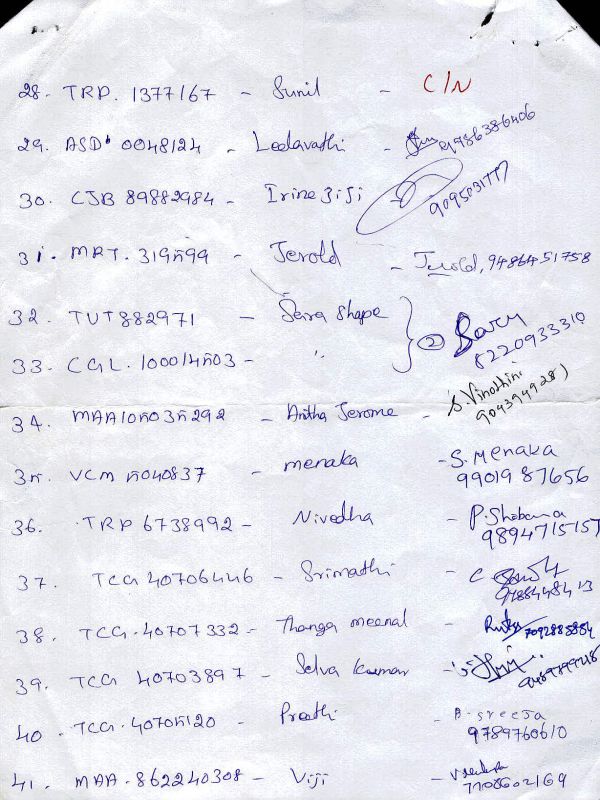 28. TRP. 1377167 - Sunil - C/N
29. ASD 0048124 - Leelavathi - 9786386406
30. CJB 89882984 - Irine Jiji - 9095031777
31. MRT. 319599 - Jerold - Jerold, 9486451758
32. TUT882971 - Seira Shape } ②
8220933310
33. CGL. 100014503 - "
34. MAA105035292 - Anitha Jerome - S. Vinothini
9043949281
35. VCM 5040837 - menaka - S. Menaka
9901987656
36. TRP 6738992 - Nivedha - P. Shobana
9894715157
37. TCG 40706446 - Srimathi -
38. TCG. 40707332 - Thanga meenal - 7092885884
39. TCG 40703897 - Selva kumar -
40. TCG. 40705120 - Preethi - B. Sreeja
9789760610
41. MAA. 862240308 - Viji -
7708602169